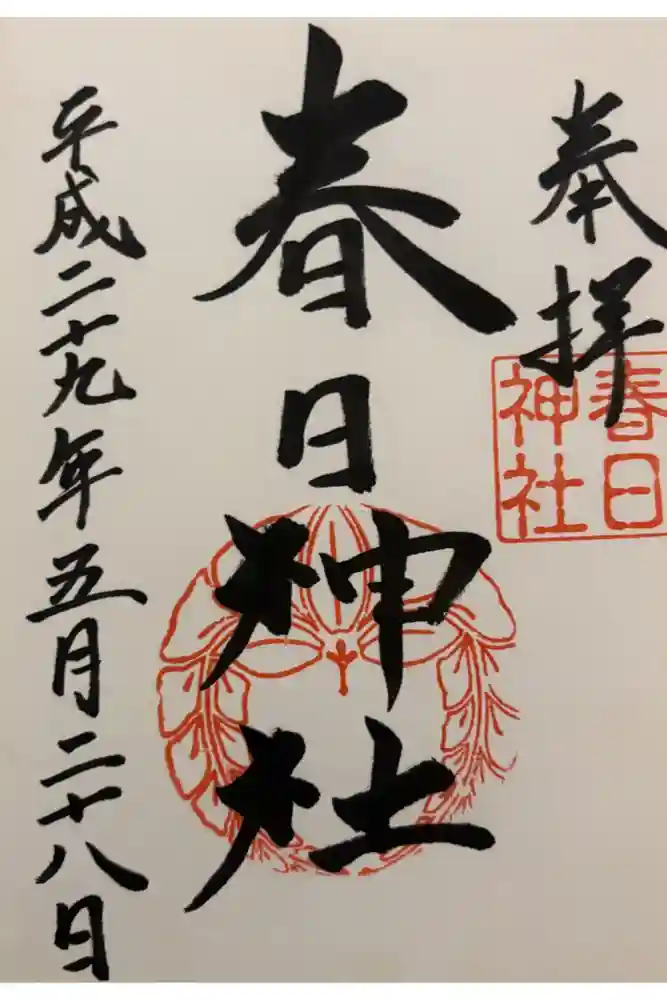 奉拝
春日神社
春日
神社
平成二十九年五月二十八日